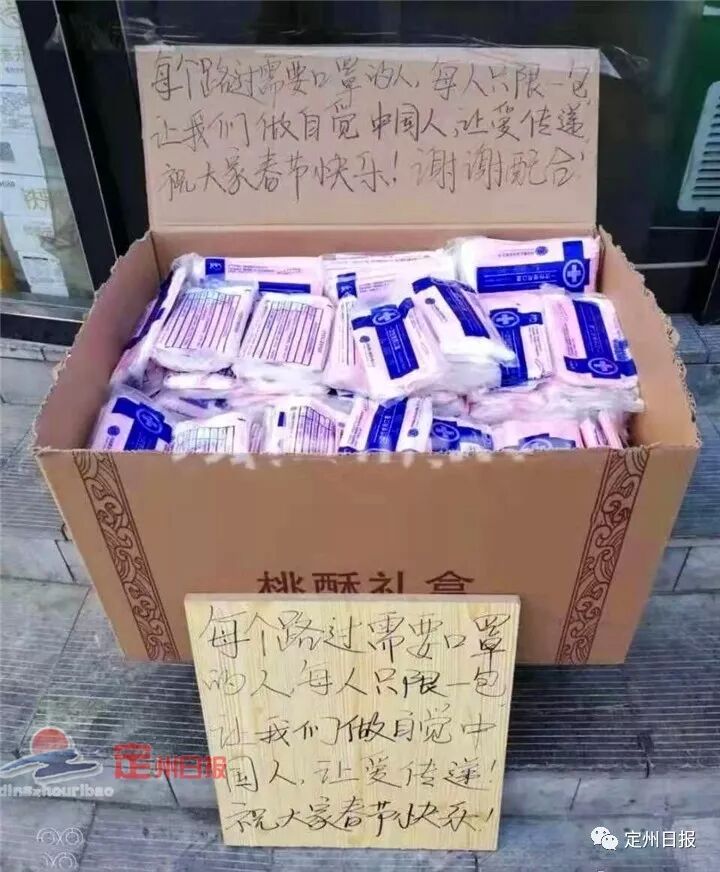 每个路过需要口罩的人，每人只限一包，
让我们做自觉中国人，让爱传递，
祝大家春节快乐！谢谢配合！
桃酥礼盒
每个路过需要口罩
的人，每人只限一包，
让我们做自觉中
国人，让爱传递！
祝大家春节快乐！
定州日报
dingzhouribao
定州日报